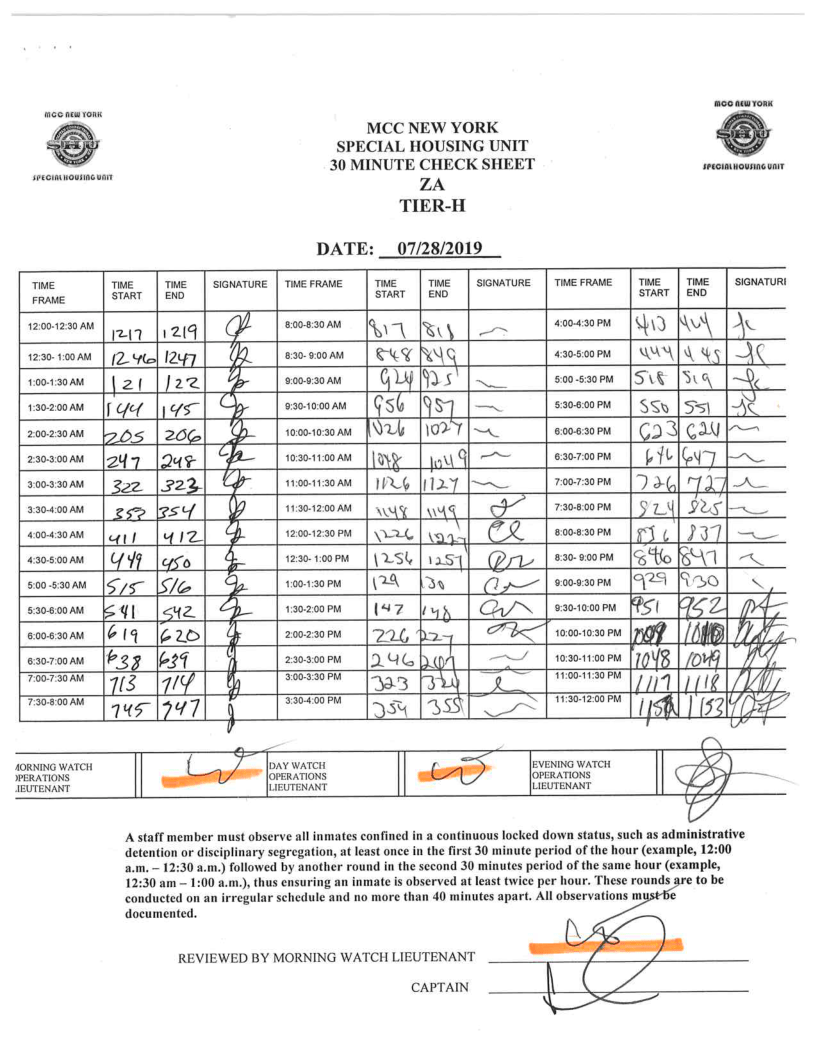 MCC NEW YORK
SHU
SPECIAL HOUSING UNIT
MCC NEW YORK
SHU
SPECIAL HOUSING UNIT
MCC NEW YORK
SPECIAL HOUSING UNIT
30 MINUTE CHECK SHEET
ZA
TIER-H
DATE: 07/28/2019
TIME FRAME TIME START TIME END SIGNATURE TIME FRAME TIME START TIME END SIGNATURE TIME FRAME TIME START TIME END SIGNATURI
12:00-12:30 AM 1217 1219 8:00-8:30 AM 817 818 4:00-4:30 PM 413 414
12:30- 1:00 AM 1246 1247 8:30- 9:00 AM 848 849 4:30-5:00 PM 444 445
1:00-1:30 AM 121 122 9:00-9:30 AM 924 925 5:00 -5:30 PM 518 519
1:30-2:00 AM 144 145 9:30-10:00 AM 956 957 5:30-6:00 PM 550 551
2:00-2:30 AM 205 206 10:00-10:30 AM 1026 1027 6:00-6:30 PM 623 624
2:30-3:00 AM 247 248 10:30-11:00 AM 1048 1049 6:30-7:00 PM 646 647
3:00-3:30 AM 322 323 11:00-11:30 AM 1126 1127 7:00-7:30 PM 726 727
3:30-4:00 AM 353 354 11:30-12:00 AM 1148 1149 7:30-8:00 PM 824 825
4:00-4:30 AM 411 412 12:00-12:30 PM 1226 1227 8:00-8:30 PM 836 837
4:30-5:00 AM 449 450 12:30- 1:00 PM 1256 1257 8:30- 9:00 PM 846 847
5:00 -5:30 AM 515 516 1:00-1:30 PM 129 130 9:00-9:30 PM 929 930
5:30-6:00 AM 541 542 1:30-2:00 PM 147 148 9:30-10:00 PM 951 952
6:00-6:30 AM 619 620 2:00-2:30 PM 226 227 10:00-10:30 PM
6:30-7:00 AM 638 639 2:30-3:00 PM 246 247 10:30-11:00 PM 1048 1049
7:00-7:30 AM 713 714 3:00-3:30 PM 323 324 11:00-11:30 PM 1117 1118
7:30-8:00 AM 745 747 3:30-4:00 PM 354 355 11:30-12:00 PM 1152 1153
MORNING WATCH DAY WATCH EVENING WATCH
OPERATIONS OPERATIONS OPERATIONS
LIEUTENANT LIEUTENANT LIEUTENANT
A staff member must observe all inmates confined in a continuous locked down status, such as administrative
detention or disciplinary segregation, at least once in the first 30 minute period of the hour (example, 12:00
a.m. – 12:30 a.m.) followed by another round in the second 30 minutes period of the same hour (example,
12:30 am – 1:00 a.m.), thus ensuring an inmate is observed at least twice per hour. These rounds are to be
conducted on an irregular schedule and no more than 40 minutes apart. All observations must be
documented.
REVIEWED BY MORNING WATCH LIEUTENANT
CAPTAIN